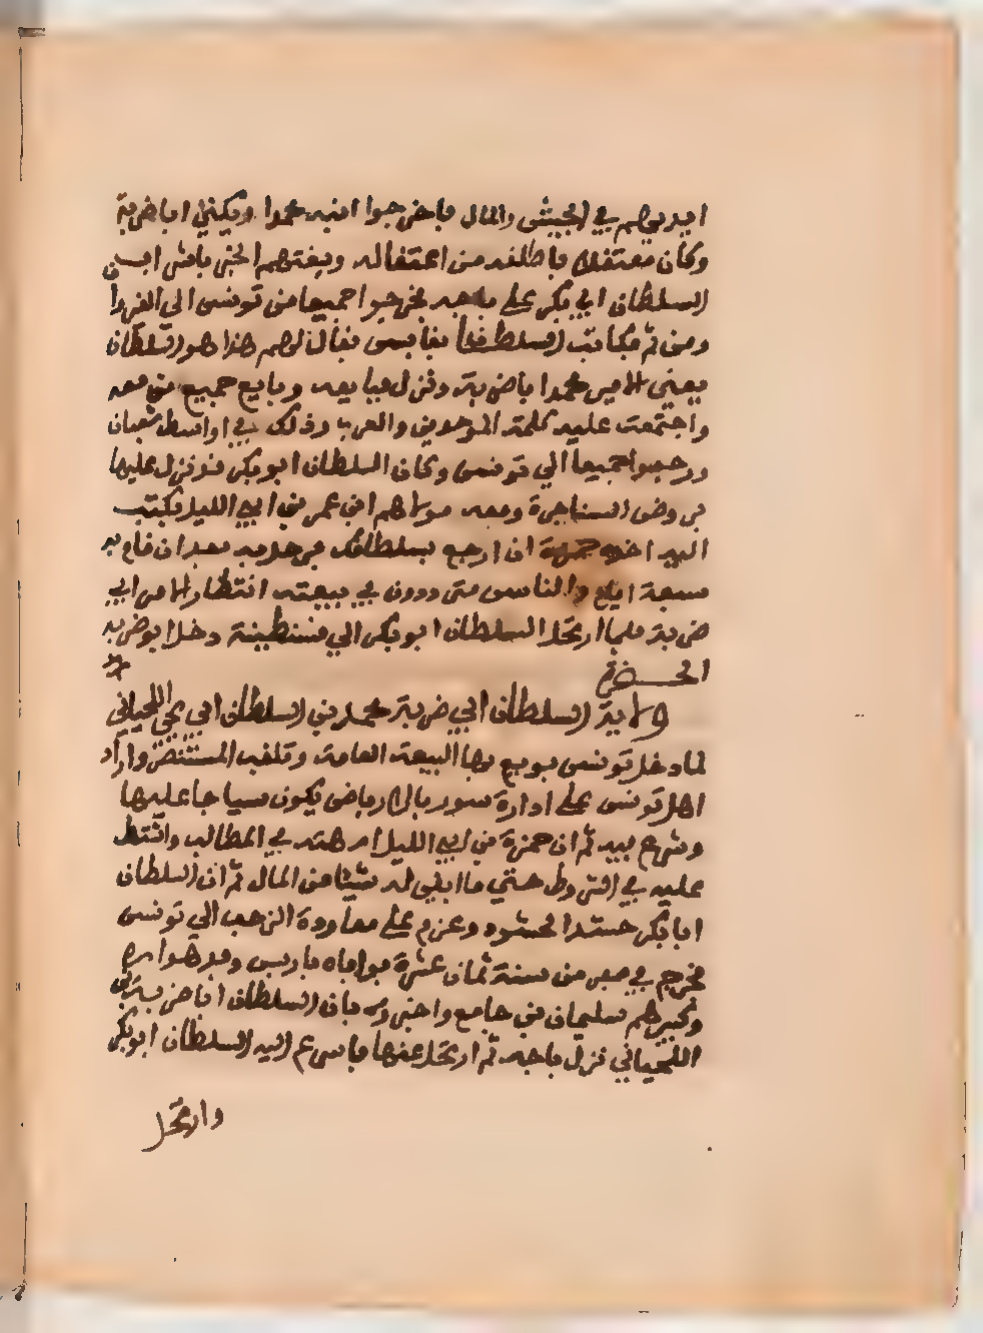 ايديهم في الجيش والمال فاخرجوا ابنه محمدا ويكنى اباضربة
وكان معتقلا فاطلقه من اعتقاله وبغتهم الخبر بان ابن
السلطان ابي بكر على باجه فخرجوا جميعا من تونس الى
ومن ثم السلطان بقابس فقال لهم هذا هو السلطان
يعني الامير محمدا اباضربة ونزل فبايعه وبايع جميع من معه
واجتمعت عليه كلمة الموحدين والعرب وذلك في اواسط شعبان
ورجعوا جميعا الى تونس وكان السلطان ابو بكر قد نزل عليها
بروض السناجرة ومعه مولاهم ابن عمر بن ابي الليل فكتب
اليه اخوه حمزة ان ارجع بسلطانك من هذا بعد ان قام به
سبعة ايام والناس مترددون في بيعته انتظار الامر ابي
ضربة فلما ارتحل السلطان ابو بكر الى قسنطينة دخل ابو ضربة
الحضرة
ولاية السلطان ابي ضربة محمد بن السلطان ابي يحي اللحياني
لما دخل تونس بويع بها البيعة العامة وتلقب المستنصر واراد
اهل تونس على ادارة سور بالارباض يكون سياجا عليها
وشرع فيه ثم ان حمزة بن ابي الليل ارهقته في المطالب واشتط
عليه في الشروط حتى ما ابقى له شيئا من المال ثم ان السلطان
ابا بكر حشد الحشود وعزم على معاودة الزحف الى تونس
فخرج في صفر من سنة ثمان عشرة فوافاه باربس وفد هوارة
وكبيرهم سليمان بن جامع واخبروه بان السلطان اباضربة بن
اللحياني نزل باجه ثم ارتحل عنها فاسرع اليه السلطان ابو بكر
وارتحل